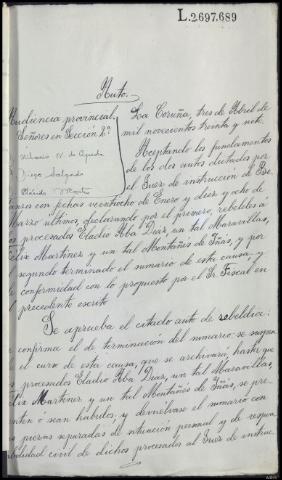 L.2.697.689
Auto.
Audiencia provincial.
Señores en Sección 2ª
Diego Salgado
La Coruña, tres de Abril de
mil novecientos treinta y siete.
Aceptando los fundamentos
de los dos autos dictados por
el Juez de instrucción de Be-
tanzos con fechas veintiocho de Enero y diez y ocho de
Marzo últimos, declarando por el primero, rebeldes á
los procesados Eladio Díaz, un tal Maravillas,
Félix Martinez y un tal Montañés de Iñás, y por
el segundo terminado el sumario de esta causa, y
de conformidad con lo propuesto por el Sr. Fiscal en
el precedente escrito
Se aprueba el citado auto de rebeldía:
se confirma el de terminación del sumario: se suspen
el curso de esta causa, que se archivará, hasta que
los procesados Eladio Díaz, un tal Maravillas,
Félix Martinez y un tal Montañés de Iñás, se pre-
senten ó sean habidos; y devuélvase el sumario con
las piezas separadas de situación personal y de respon
sabilidad civil de dichos procesados al Juez de instruc